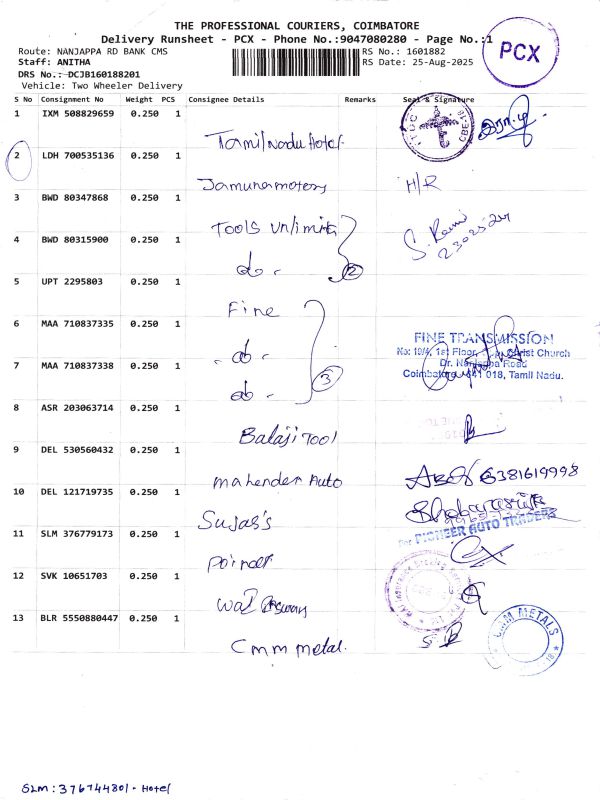 THE PROFESSIONAL COURIERS, COIMBATORE
Delivery Runsheet - PCX - Phone No.:9047080280 - Page No.:1
PCX
Route: NANJAPPA RD BANK CMS
RS No.: 1601882
Staff: ANITHA
RS Date: 25-Aug-2025
DRS No.: DCJB160188201
Vehicle: Two Wheeler Delivery
S No Consignment No Weight PCS Consignee Details Remarks Seal & Signature
1 IXM 508829659 0.250 1
Tamil Nadu Hotel.
2 LDH 700535136 0.250 1
Jamuna motors H/R
3 BWD 80347868 0.250 1
TOOLS Unlimit
4 BWD 80315900 0.250 1
do - 2
5 UPT 2295803 0.250 1
Fine
6 MAA 710837335 0.250 1
- do -
FINE TRANSMISSION
No: 10/4, 1st Floor, Christ Church
Dr. Nanjappa Road
Coimbatore 641 018, Tamil Nadu.
7 MAA 710837338 0.250 1
do - 3
8 ASR 203063714 0.250 1
Balaji TOOl
9 DEL 530560432 0.250 1
mahender Auto 6381619998
10 DEL 121719735 0.250 1
Sujas's
For PIONEER AUTO TRADERS
11 SLM 376779173 0.250 1
Poineer
12 SVK 10651703 0.250 1
13 BLR 5550880447 0.250 1
Cmm metal.
CMM METALS
SLM: 376744801 - Hotel